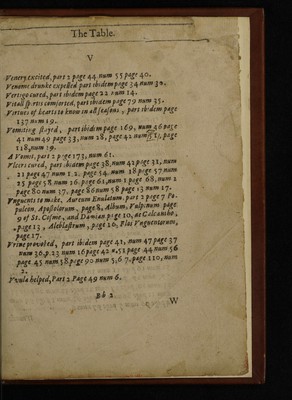 The Table.
V
Venery excited, part 2 page 44 num 55 page 40.
Venome drunke expelled part ibidem page 34 num 32.
Vertigo cured, part ibidem page 22 num 14.
Vitall spirits comforted, part ibidem page 79 num 35.
Virtues of hearts to know in all seasons, part ibidem page
137 num 19.
Vomiting stayed, part ibidem page 169, num 46 page
41 num 49 page 33, num 28, page 42 num page
118, num 19.
A Vomit, part 2 page 173, num 61.
Vlcers cured, part ibidem page 38, num 42 page 32, num
21 page 47 num 1.2. page 54. num 18 page 57 num
25 page 58 num 26. page 61, num 1 page 68, num 2
page 80 num 37. page 86 num 58 page 13 num 17.
Vnguents to make, Aureum Emulatum. part 2 page 7 Po-
puleon, Apostolorum, page 8, Album, Fuscum page
9 of St. Cosme, and Damian page 10, as Calcanbo,
page 13, Aleblastrum, page 16, Elas Vnguentorum,
page 17.
Vrine provoked, part ibidem page 41, num 47 page 37
num 36, p. 23 num 16 page 42 n, 51 page 44 num 56
page 45 num 58 page 90 num 5, 6 7. page 110, num
2.
Vvula helped, Part 2 Page 49 num 6.
Bb 2
W